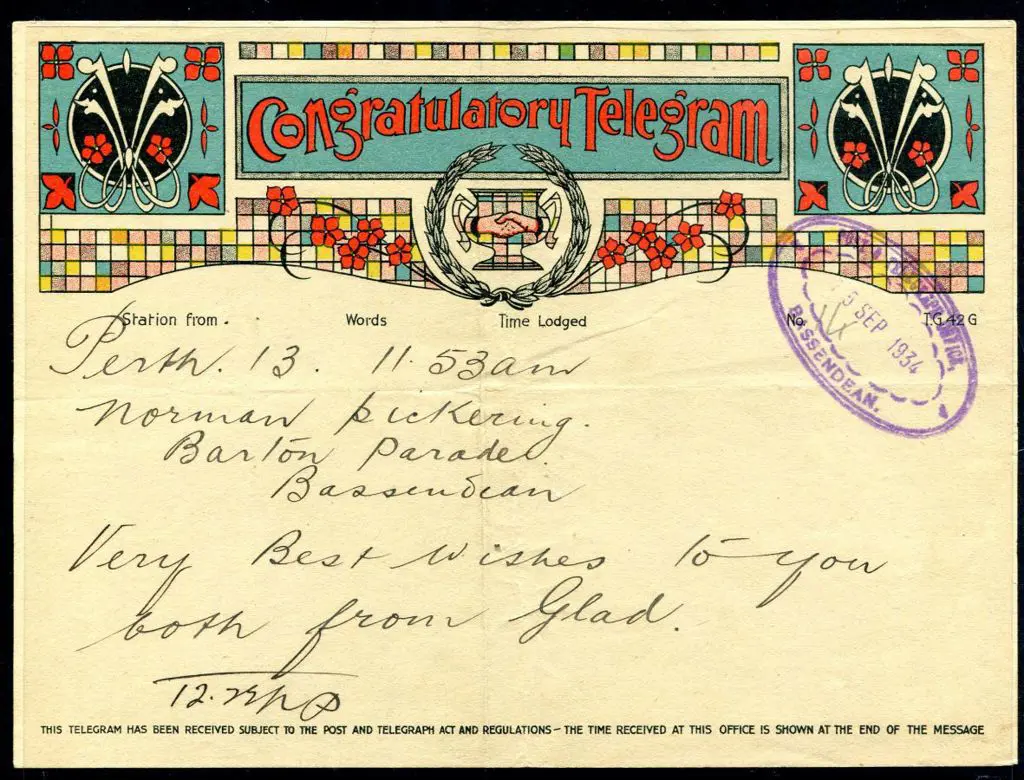 Congratulatory Telegram
Station from. Words Time Lodged No. T.G. 42 G
5 SEP 1934
BASSENDEAN.
Perth. 13. 11.53am
Norman Pickering.
Barton Parade.
Bassendean
Very Best Wishes to you
both from Glad.
THIS TELEGRAM HAS BEEN RECEIVED SUBJECT TO THE POST AND TELEGRAPH ACT AND REGULATIONS – THE TIME RECEIVED AT THIS OFFICE IS SHOWN AT THE END OF THE MESSAGE